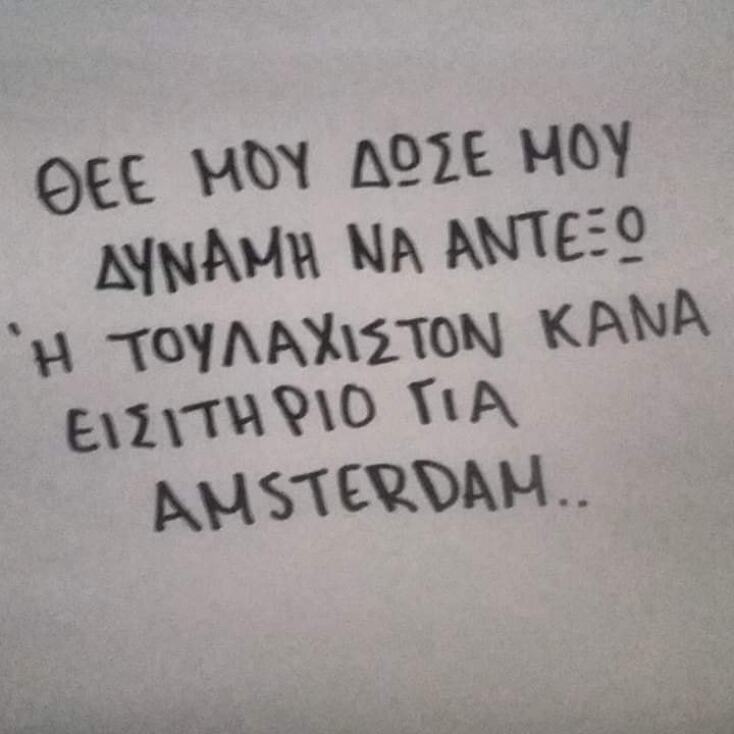 ΘΕΕ ΜΟΥ ΔΩΣΕ ΜΟΥ
ΔΥΝΑΜΗ ΝΑ ΑΝΤΕΞΩ
Ή ΤΟΥΛΑΧΙΣΤΟΝ ΚΑΝΑ
ΕΙΣΙΤΗΡΙΟ ΓΙΑ
AMSTERDAM..